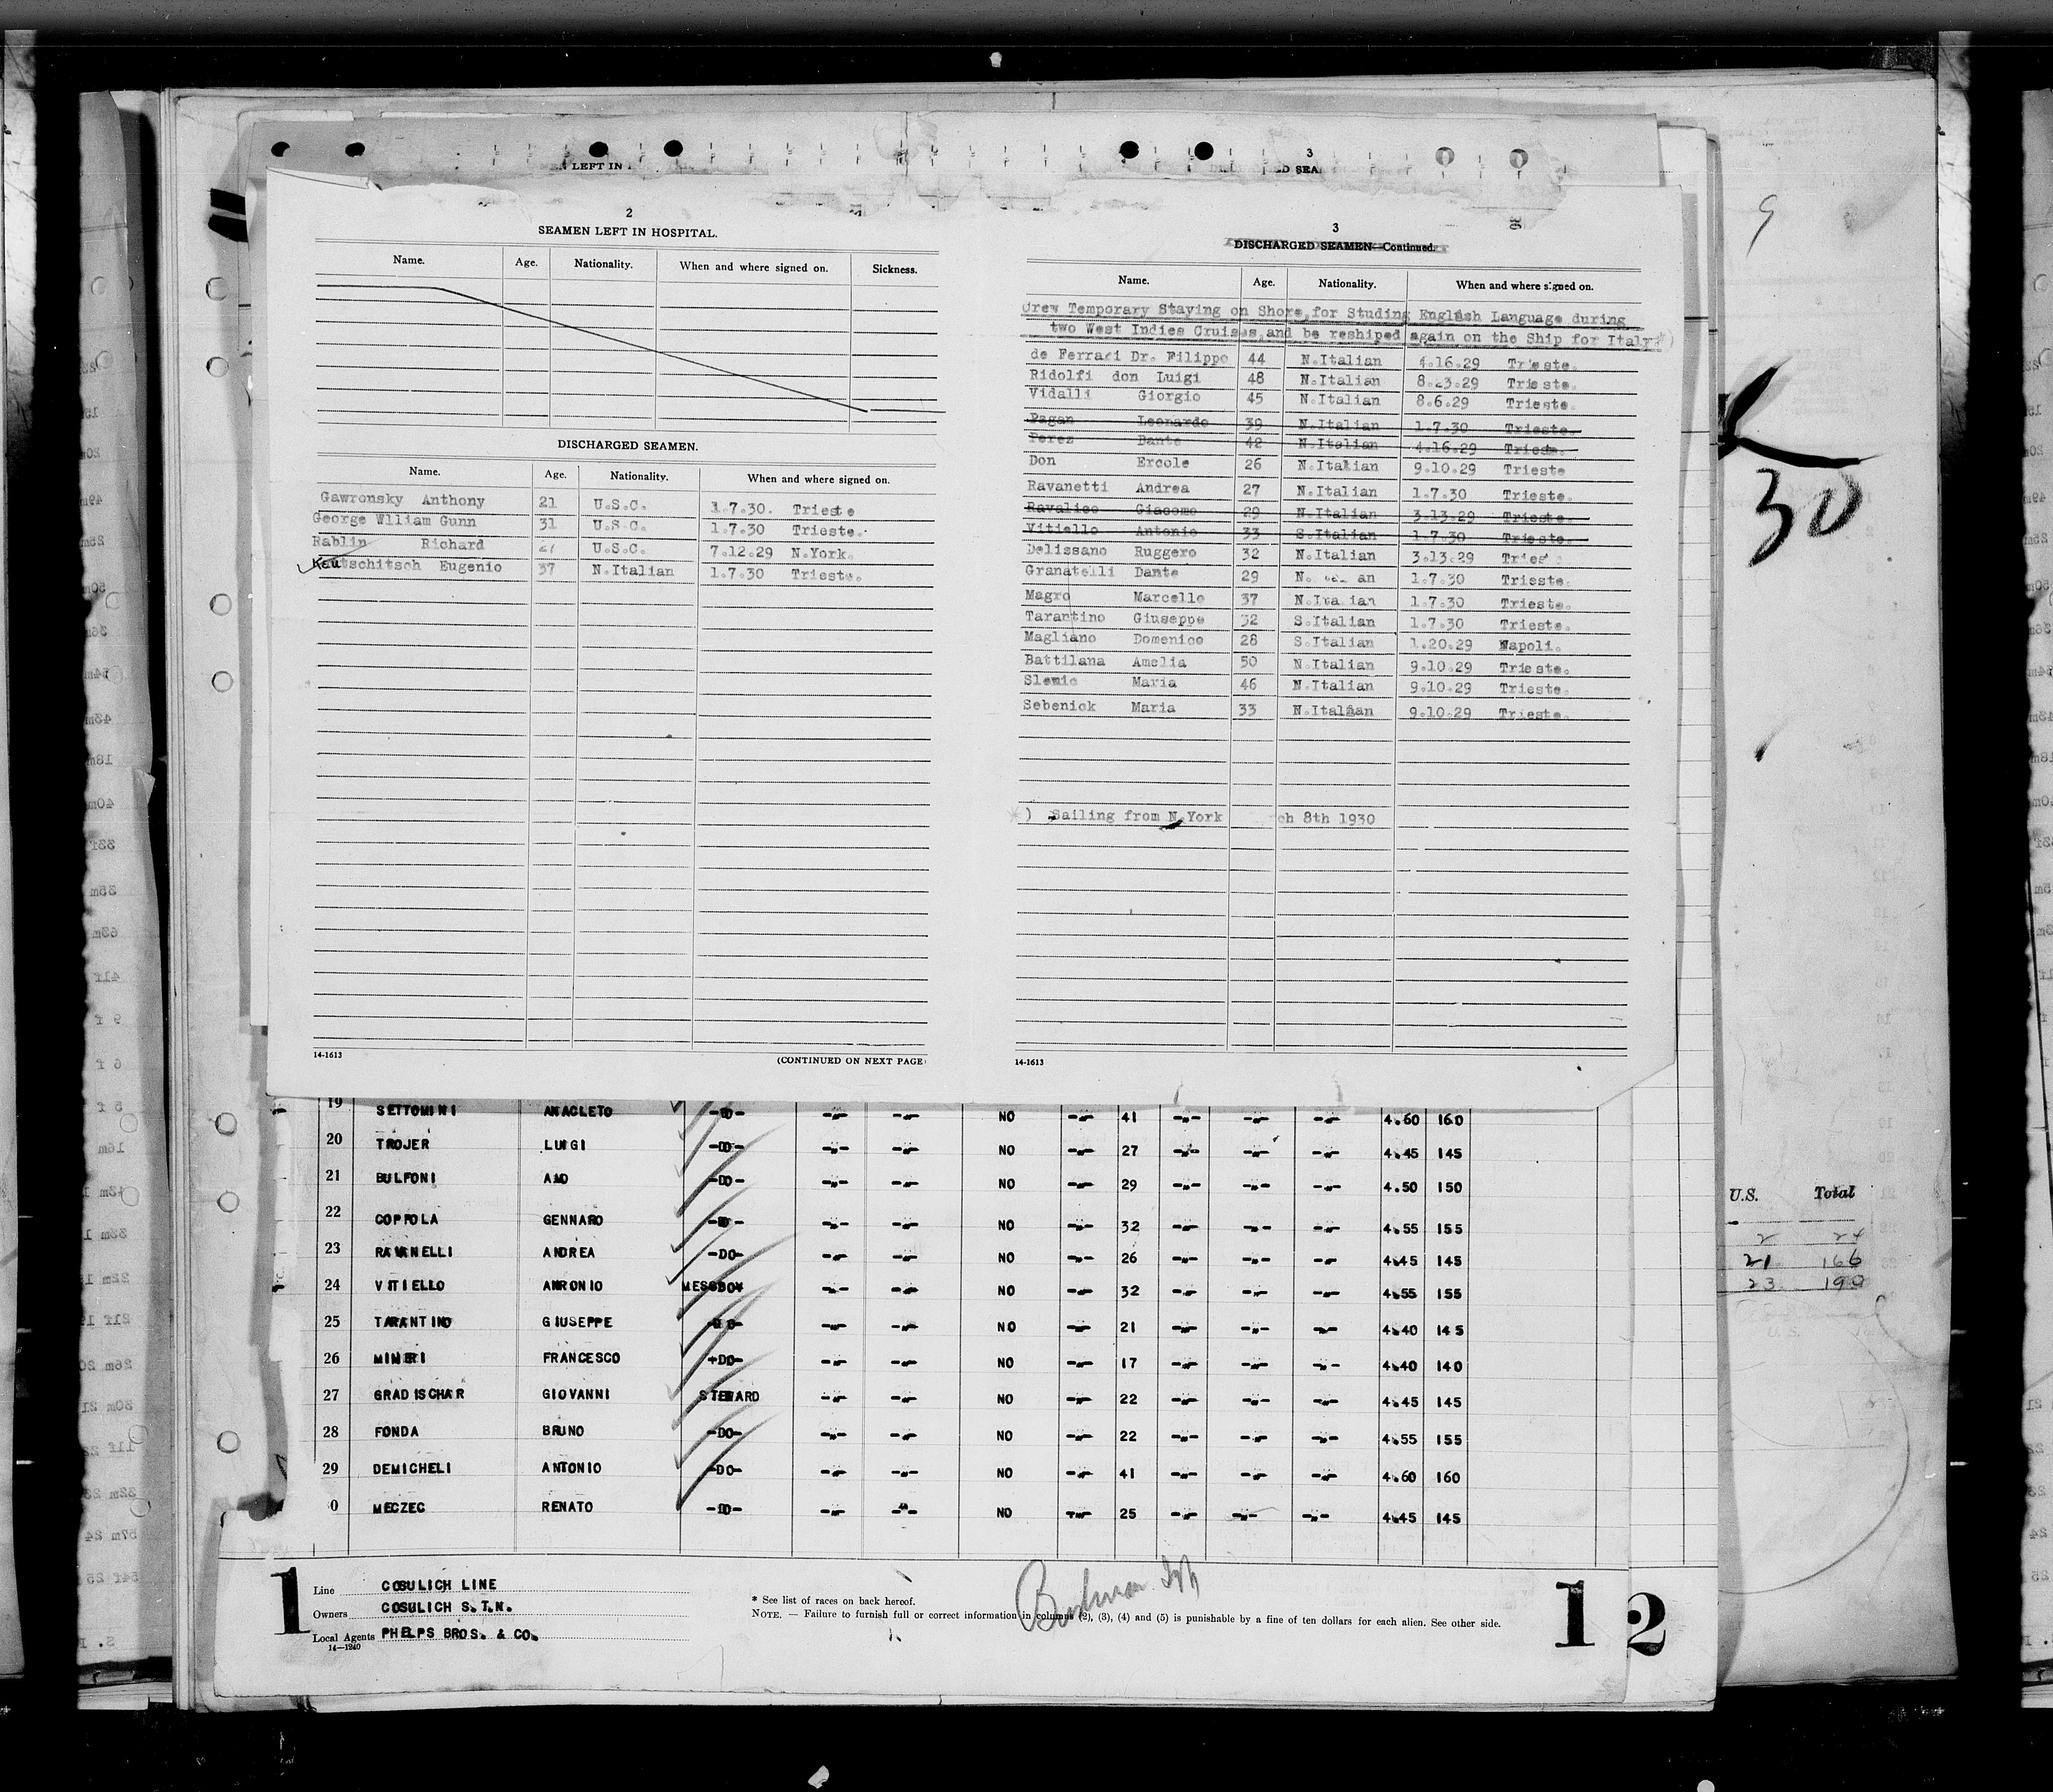 LEFT IN
3
2
SEAMEN LEFT IN HOSPITAL.
Name. Age. Nationality. When and where signed on. Sickness.
DISCHARGED SEAMEN.
Name. Age. Nationality. When and where signed on.
Gawronsky Anthony 21 U.S.C. 1.7.30. Trieste
George Wlliam Gunn 31 U.S.C. 1.7.30 Trieste.
Rablin Richard U.S.C. 7.12.29 N.York.
Kautschitsch Eugenio 37 N.Italian 1.7.30 Trieste.
14-1613 (CONTINUED ON NEXT PAGE)
3
DISCHARGED SEAMEN—Continued.
Name. Age. Nationality. When and where signed on.
Crew Temporary Staying on Shore, for Studing English Language during
two West Indies Cruises, and be reshiped again on the Ship for Italy *)
de Ferrari Dr. Filippo 44 N.Italian 4.16.29 Trieste.
Ridolfi don Luigi 48 N.Italian 8.23.29 Trieste.
Vidalli Giorgio 45 N.Italian 8.6.29 Trieste.
Pagan Leonardo 39 N.Italian 1.7.30 Trieste.
Perez Dante 42 N.Italian 4.16.29 Trieste.
Don Ercole 26 N.Italian 9.10.29 Trieste
Ravanetti Andrea 27 N.Italian 1.7.30 Trieste.
Ravalico Giacomo 29 N.Italian 3.13.29 Trieste.
Vitiello Antonio 33 S.Italian 1.7.30 Trieste.
Delissano Ruggero 32 N.Italian 3.13.29 Tries
Granatelli Dante 29 N. an 1.7.30 Trieste.
Magro Marcello 37 N.Italian 1.7.30 Trieste.
Tarantino Giuseppe S.Italian 1.7.30 Trieste.
Magliano Domenico 28 S.Italian 1.20.29 Napoli.
Battilana Amelia 50 N.Italian 9.10.29 Trieste.
Slemic Maria 46 N.Italian 9.10.29 Trieste.
Sebenick Maria 33 N.Italian 9.10.29 Trieste.
*) Sailing from N.York ch 8th 1930
14-1613
9
30
19 SETTOMINI ANACLETO -DO- -"- -"- NO -"- 41 -"- -"- -"- 4.60 160
20 TROJER LUIGI -DO- -"- -"- NO -"- 27 -"- -"- -"- 4.45 145
21 BULFONI -DO- -"- -"- NO -"- 29 -"- -"- -"- 4.50 150
22 COPPOLA GENNARO -DO- -"- -"- NO -"- 32 -"- -"- -"- 4.55 155
23 RAVANELLI ANDREA -DO- -"- -"- NO -"- 26 -"- -"- -"- 4.45 145
24 VITIELLO ANTONIO MESSBOY -"- -"- NO -"- 32 -"- -"- -"- 4.55 155
25 TARANTINO GIUSEPPE -DO- -"- -"- NO -"- 21 -"- -"- -"- 4.40 145
26 MINERI FRANCESCO -DO- -"- -"- NO -"- 17 -"- -"- -"- 4.40 140
27 GRADISCHAR GIOVANNI STEWARD -"- -"- NO -"- 22 -"- -"- -"- 4.45 145
28 FONDA BRUNO -DO- -"- -"- NO -"- 22 -"- -"- -"- 4.55 155
29 DEMICHELI ANTONIO -DO- -"- -"- NO -"- 41 -"- -"- -"- 4.60 160
0 MECZEC RENATO -DO- -"- -"- NO -"- 25 -"- -"- -"- 4.45 145
U.S. Total
2 24
21 166
23 190
1
Line COSULICH LINE
Owners COSULICH S.T.N.
Local Agents PHELPS BROS. & CO.
14—1240
* See list of races on back hereof.
NOTE. — Failure to furnish full or correct information in columns (2), (3), (4) and (5) is punishable by a fine of ten dollars for each alien. See other side.
1 2